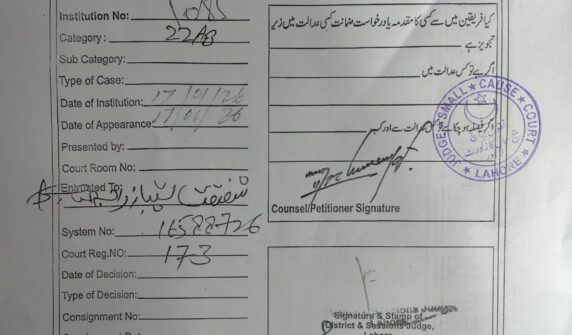 Institution No:
Category: 22AB
Sub Category:
Type of Case:
Date of Institution: 17/01/26
Date of Appearance: 17/01/26
Presented by:
Court Room No:
Entrusted To:
System No: 16588726
Court Reg.NO: 173
Date of Decision:
Type of Decision:
Consignment No:
کیا فریقین میں سے کسی کا مقدمہ یا درخواست ضمانت کسی عدالت میں زیر
تجویز ہے
اگر ہے تو کس عدالت میں
اگر فیصلہ ہو چکا ہے تو کس عدالت سے اور کب
JUDGE SMALL CAUSE COURT
LAHORE
Counsel/Petitioner Signature
Signature & Stamp of
District & Sessions Judge,